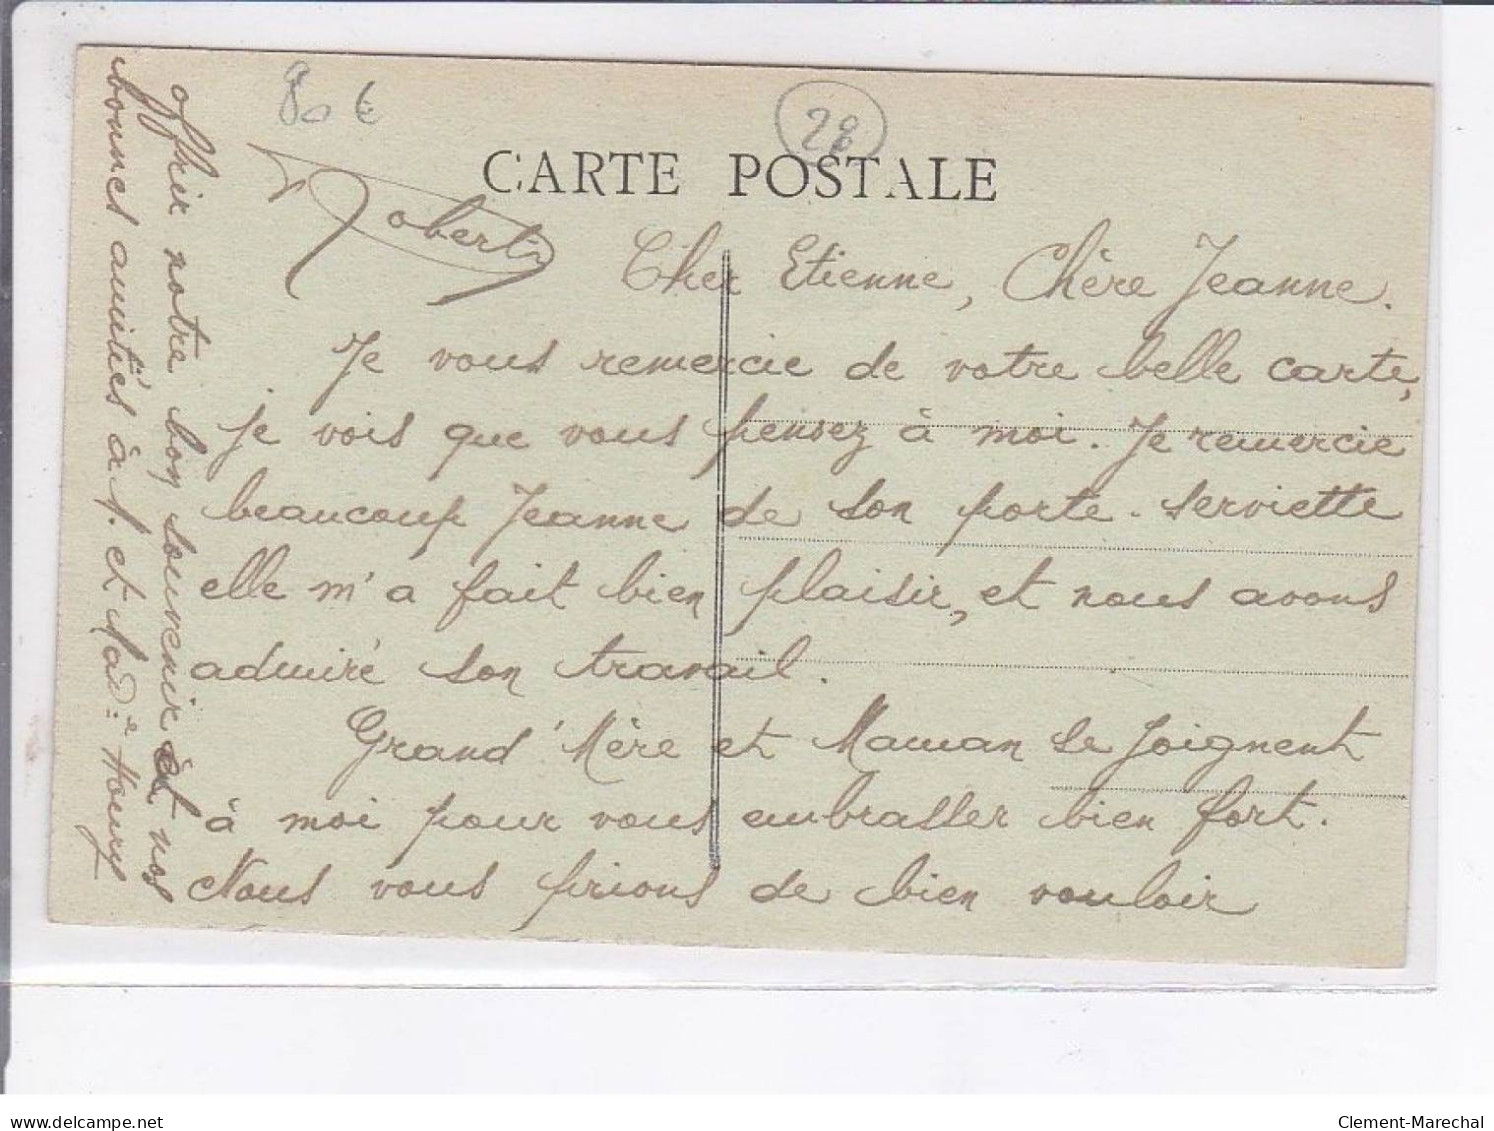 80 €
28
CARTE POSTALE
Robert
Cher Etienne, Chère Jeanne.
Je vous remercie de votre belle carte,
je vois que vous pensez à moi. Je remercie
beaucoup Jeanne de son porte-serviette
elle m'a fait bien plaisir, et nous avons
admiré son travail.
Grand'Mère et Maman se joignent
à moi pour vous embrasser bien fort.
Nous vous prions de bien vouloir
offrir notre bon souvenir et nos
bonnes amitiés à M. et Mad.e Houry
delcampe.net
Clement-Marechal